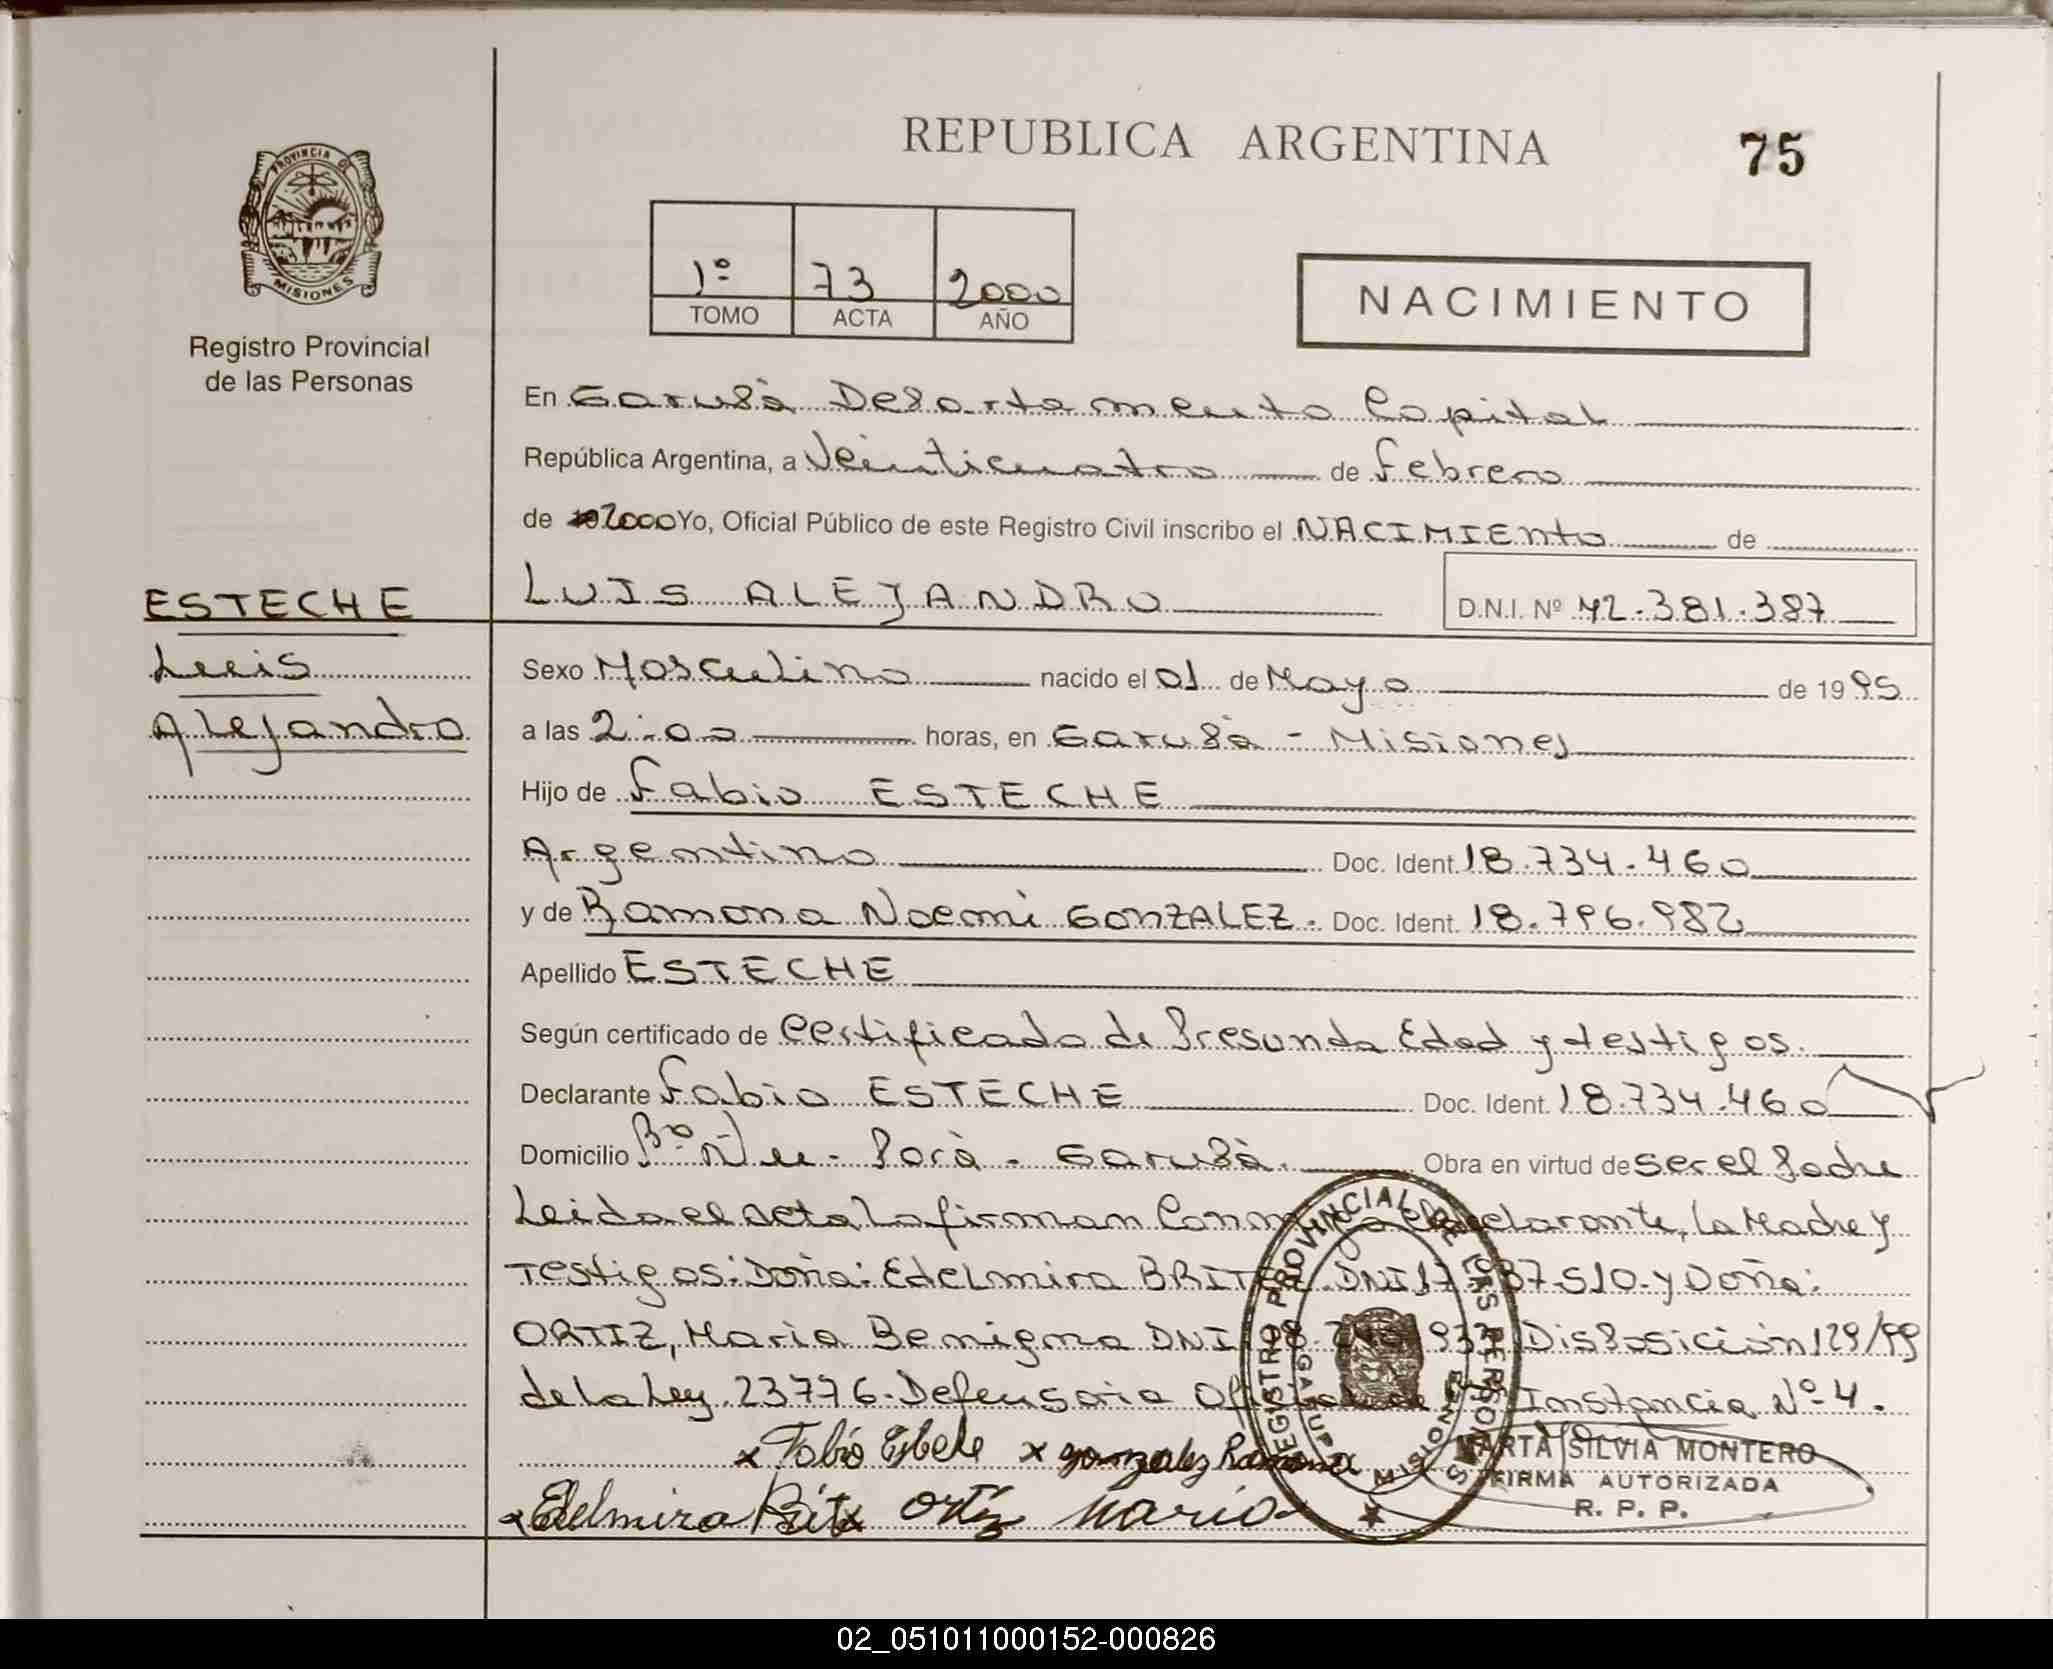 REPUBLICA ARGENTINA
75
PROVINCIA DE
MISIONES
Registro Provincial
de las Personas
1º 73 2000
TOMO ACTA AÑO
NACIMIENTO
En Garupà Departamento Capital
República Argentina, a Veinticuatro de Febrero
de 2000 Yo, Oficial Público de este Registro Civil inscribo el NACIMIENto de
ESTECHE
LUIS ALEJANDRO
D.N.I. Nº 42.381.387
Luis
Alejandro
Sexo Masculino nacido el 01 de Mayo de 1995
a las 2:00 horas, en Garupà - Misiones
Hijo de Fabio ESTECHE
Argentino Doc. Ident. 18.734.460
y de Ramona Noemi GONZALEZ. Doc. Ident. 18.796.982
Apellido ESTECHE
Según certificado de Certificado de Presunda Edad y testigos.
Declarante Fabio ESTECHE Doc. Ident. 18.734.460
Domicilio Bº Ñu - Porà - Garupà. Obra en virtud de ser el Padre
Leida el acta la firman Conmigo el declarante, La Madre y
Testigos: Doña: Edelmira BRITE DNI 17 37.510 y Doña:
ORTIZ, Maria Benigna DNI Disposición 129/99
de la Ley 23776. Defensoria Oficial de Instancia Nº 4.
x Fabio Esteche x gonzalez Ramona
x Edelmira Brite x Ortiz Maria
REGISTRO PROVINCIAL DE LAS PERSONAS
GARUPA MISIONES
MARTA SILVIA MONTERO
FIRMA AUTORIZADA
R. P. P.
02_051011000152-000826